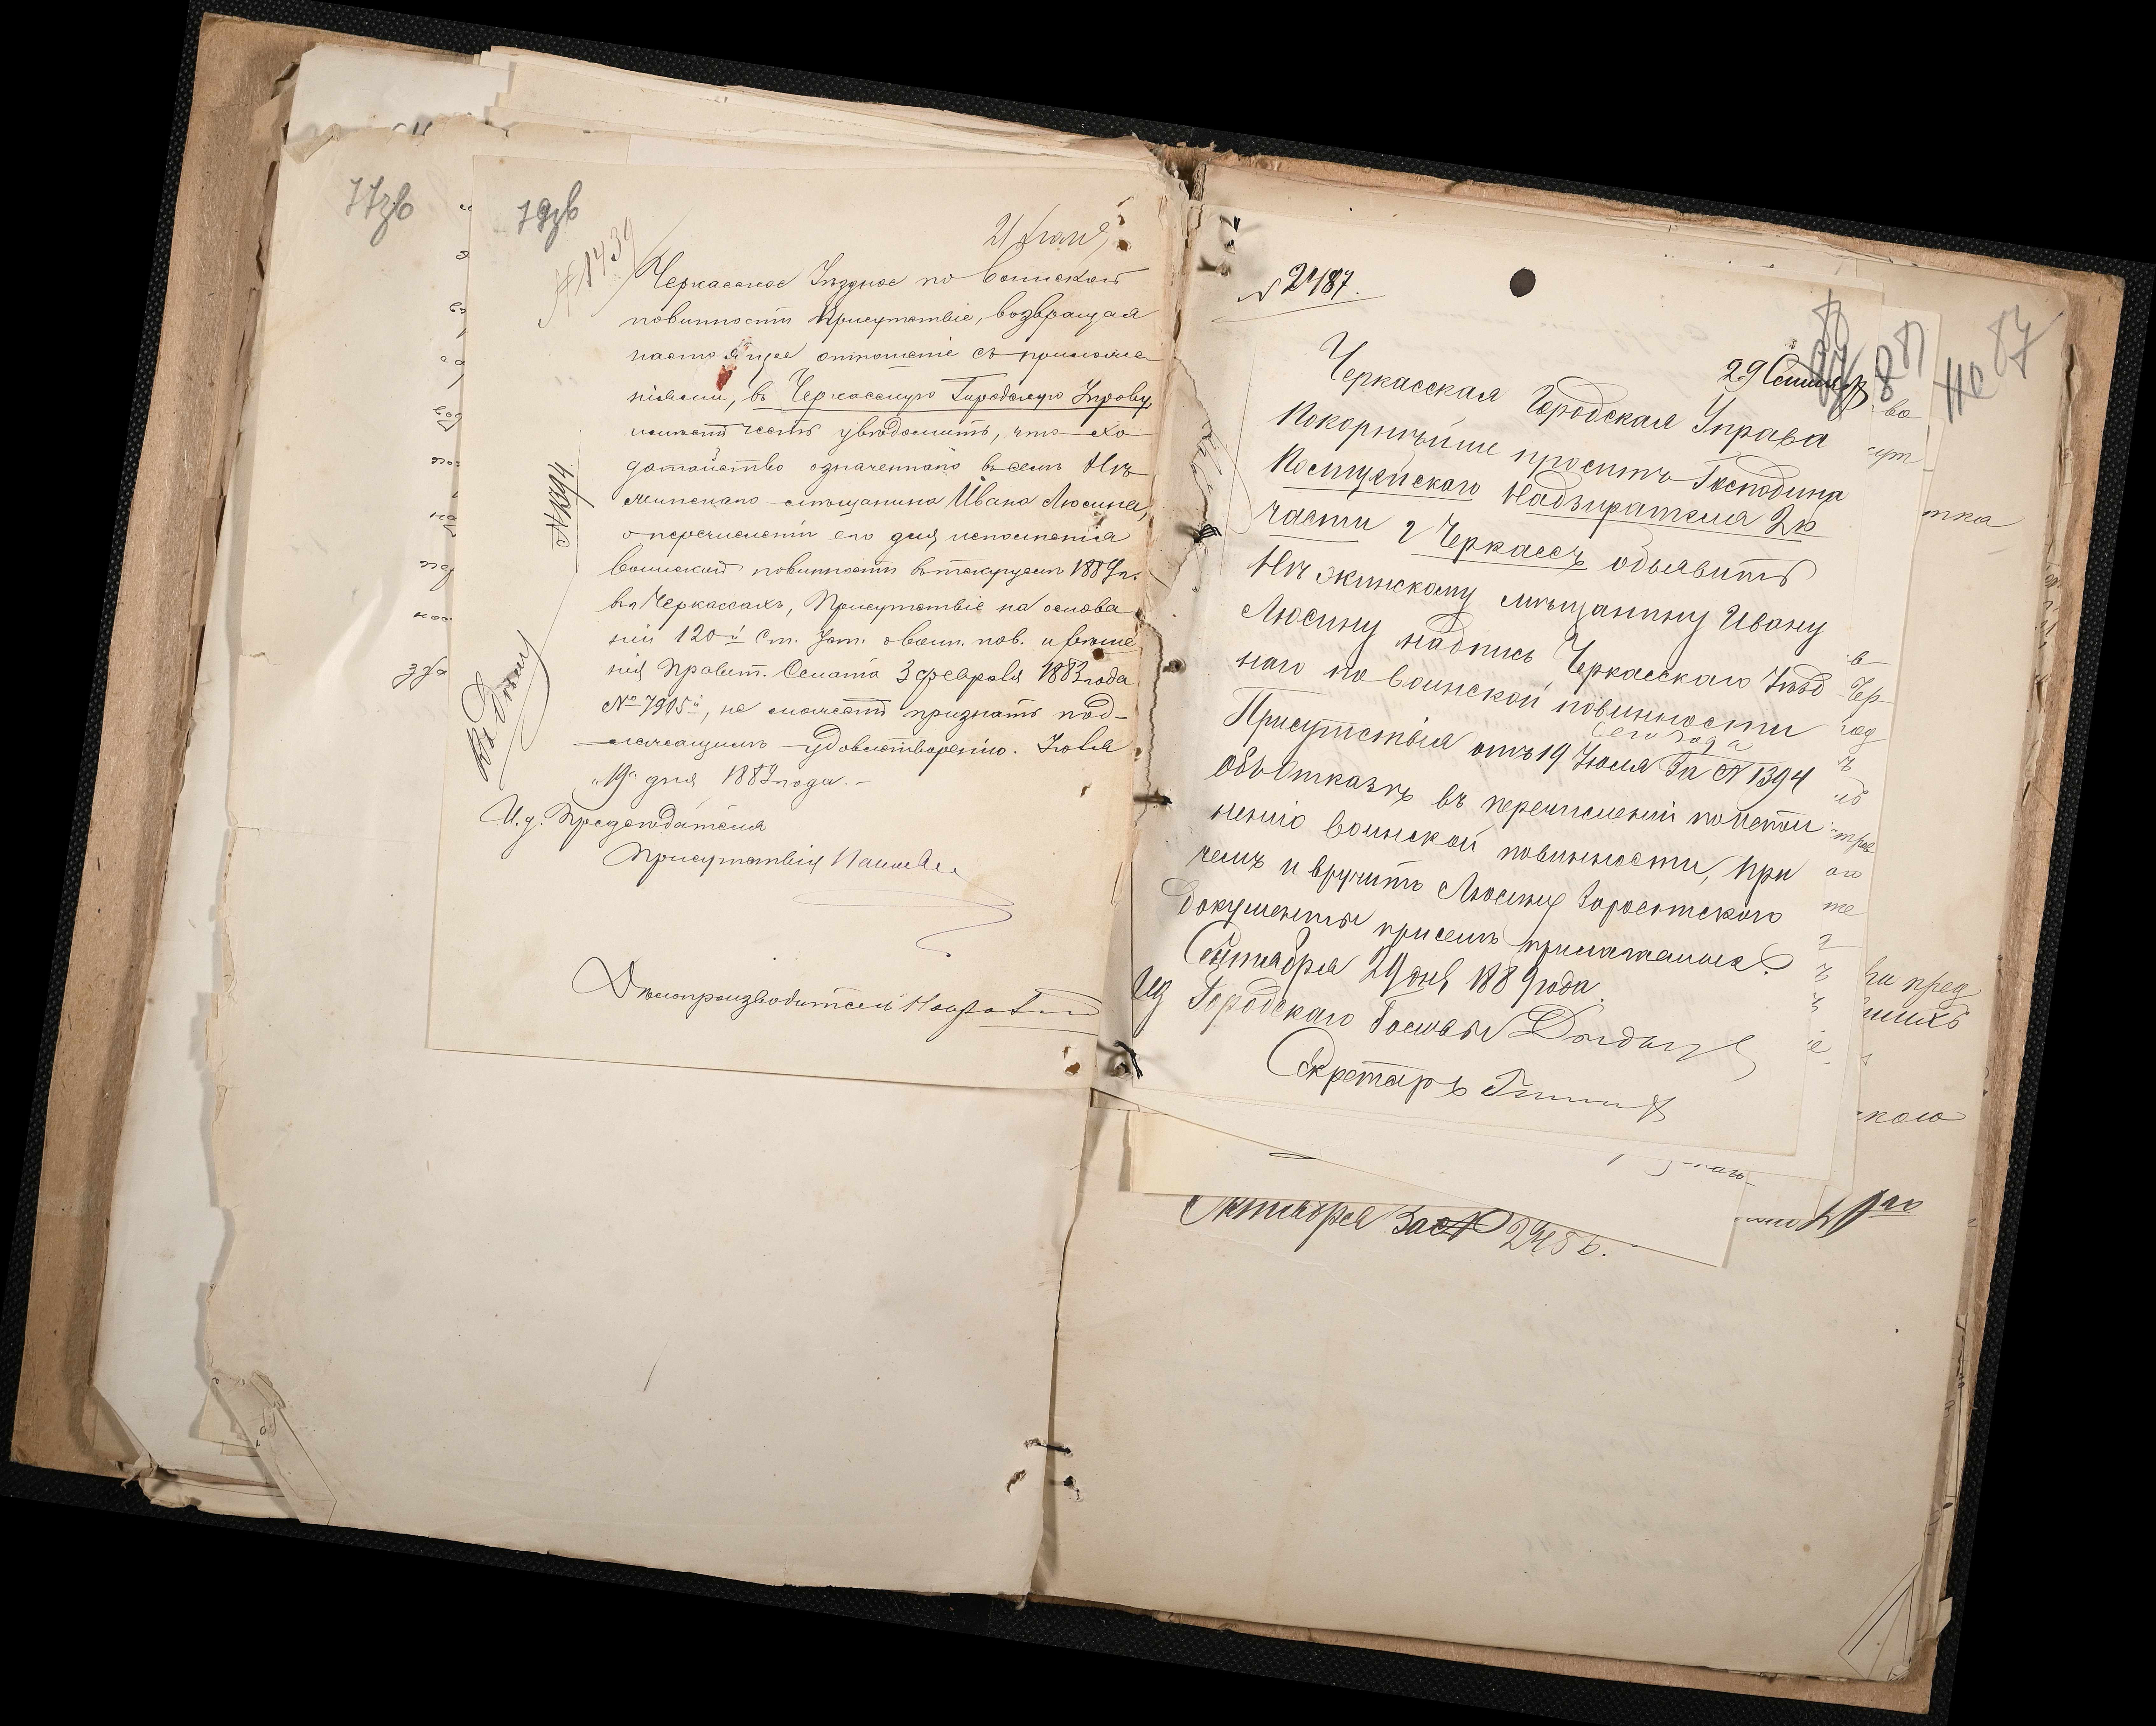 77зв
79зв
№ 1439
Черкасское Уѣздное по воинской
повинности Присутствіе, возвращая
настоящее отношеніе съ приложе
ніями, въ Черкасскую Городскую Управу,
имѣетъ честь увѣдомить, что хо
датайство означеннаго въ семъ Нѣ
жинскаго мѣщанина Ивана Люсина,
о перечисленіи его для исполненія
воинской повинности въ текущемъ 1889 г.
въ Черкассахъ, Присутствіе на основа
ніи 120й ст. Уст. о воин. пов. и рѣше
нія Правит. Сената 3 февраля 1883 года
№ 7905й, не можетъ признать под-
лежащимъ удовлетворенію. Іюля
"19" дня 1889 года.-
И. д. Предсѣдателя
Присутствія
Дѣлопроизводитель
№ 1394
№ 2487.
29 Сентяб
87
Черкасская Городская Управа
Покорнѣйше проситъ Господина
Полицейскаго Надзирателя 2й
части г Черкассъ объявить
Нѣжинскому мѣщанину Ивану
Люсину надпись Черкасскаго Уѣзд
наго по воинской повинности
Присутствія отъ 19 Іюля сего года За № 1394
объ отказѣ въ перечисленіи по испол
ненію воинской повинности, при
чемъ и вручить Люсину
документы присемъ прилагаемые.
Сентября 29 дня 1889 года.
ИД Городскаго Головы
Секретарь
Октября За № 2456.